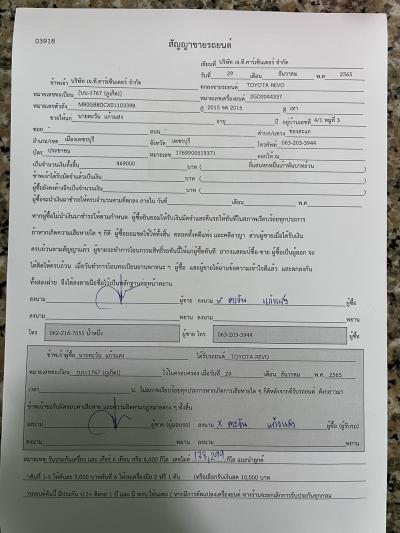 03918
สัญญาขายรถยนต์
เขียนที่ บริษัท เจ.ที.คาร์เซ็นเตอร์ จำกัด
ข้าพเจ้า บริษัท เจ.ที.คาร์เซ็นเตอร์ จำกัด วันที่ 29 เดือน ธันวาคม พ.ศ. 2565
หมายเลขทะเบียน [บบ-1767 (ภูเก็ต)] ตกลงขายรถยนต์ TOYOTA REVO
หมายเลขตัวถัง MR0GB8DCX01103398 หมายเลขเครื่องยนต์ 2GD0044337
ปี 2015 จด 2016 สี เทา
ขายให้แก่ นายตะวัน แก้วแสง อายุ ปี อยู่บ้านเลขที่ 4/1 หมู่ที่ 3
ซอย - ถนน - ตำบล/แขวง
อำเภอ/เขต เมืองเพชรบุรี จังหวัด เพชรบุรี โทรศัพท์ 063-203-3944
บัตร ประชาชน หมายเลข 1769900519371 ออกให้ ณ
เป็นจำนวนเงินทั้งสิ้น 469000 บาท ( สี่แสนหกหมื่นเก้าพันบาทถ้วน )
ข้าพเจ้าได้รับมัดจำแล้วเป็นเงิน บาท ( )
ผู้ซื้อยังคงค้างอีกเป็นจำนวนเงิน บาท ( )
ผู้ซื้อจะนำเงินมาชำระให้ครบจำนวนตามที่ตกลง ภายใน วันที่ เดือน พ.ศ.
หากผู้ซื้อไม่นำเงินมาชำระให้ตามกำหนด ผู้ซื้อยินยอมให้รับเงินมัดจำและคืนรถให้ทันทีในสภาพเรียบร้อยทุกประการ
ถ้าหากเกิดความเสียหายใด ๆ ก็ดี ผู้ซื้อยอมชดใช้ให้ทั้งสิ้น ตลอดทั้งคดีแพ่ง และคดีอาญา ส่วนผู้ขายเมื่อได้รับเงิน
ครบถ้วนตามสัญญาแล้ว ผู้ขายจะทำการโอนกรรมสิทธิ์รถคันนี้ให้แก่ผู้ซื้อทันที
ทั้งสองฝ่าย จึงได้ลงลายมือชื่อไว้เป็นหลักฐานต่อหน้าพยาน
ลงนาม ผู้ขาย ลงนาม x ตะวัน แก้วแสง ผู้ซื้อ
ลงนาม พยาน ลงนาม พยาน
โทร 062-216-7055 น้ำหนึ่ง ผู้ขาย โทร 063-203-3944 ผู้ซื้อ
ข้าพเจ้าผู้ซื้อ นายตะวัน แก้วแสง ได้รับรถยนต์ TOYOTA REVO
หมายเลขทะเบียน [บบ-1767 (ภูเก็ต)] ไว้ในครอบครอง เมื่อวันที่ 29 เดือน ธันวาคม พ.ศ. 2565
เวลา น. ในสภาพเรียบร้อยทุกประการหากเกิดการเสียหายใด ๆ ก็ดีหลังจากที่รับรถยนต์ ดังกล่าวมา
ข้าพเจ้าขอรับผิดชอบค่าเสียหาย และความผิดตามกฎหมายต่าง ๆ ทั้งสิ้น
ลงนาม ผู้ขาย (ผู้มอบรถ) ลงนาม x ตะวัน แก้วแสง ผู้ซื้อ (ผู้รับรถ)
ลงนาม พยาน ลงนาม พยาน
หมายเหตุ รับประกันเครื่อง และ เกียร์ 6 เดือน หรือ 6,000 กิโล เลขไมล์ 178,299 กิโล